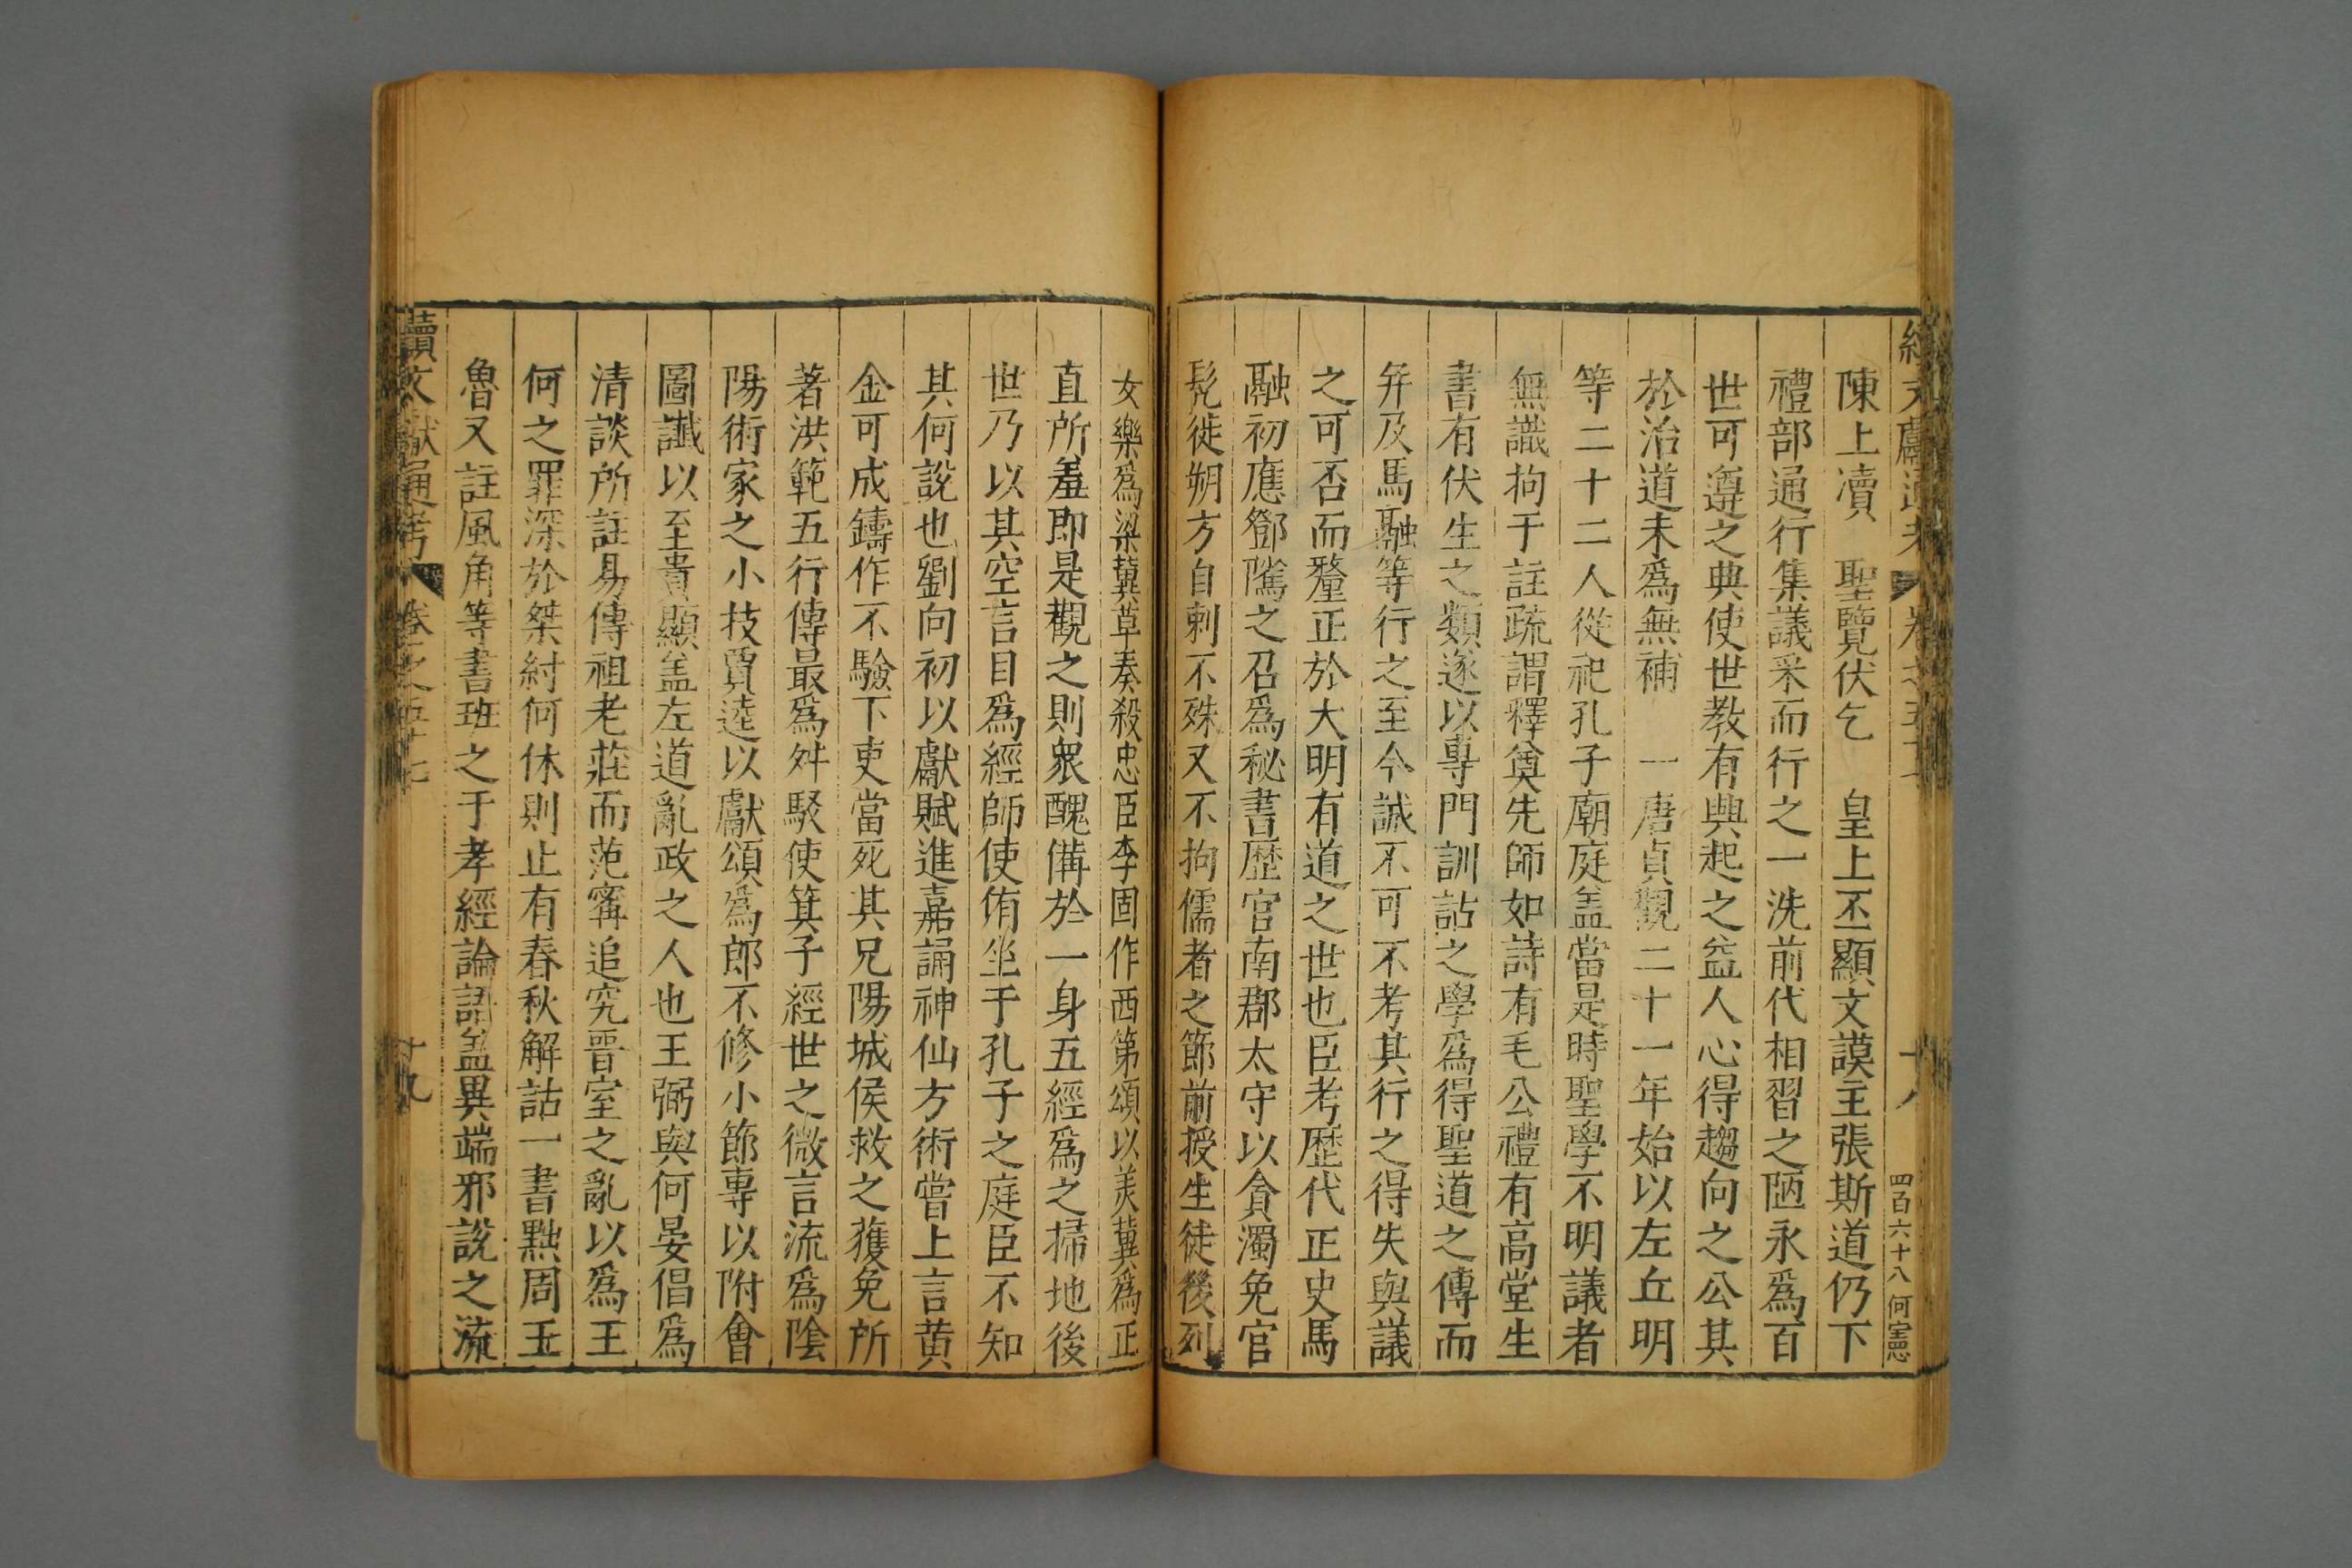 陳上瀆　聖覽伏乞　皇上丕顯文謨主張斯道仍下
禮部通行集議采而行之一洗前代相習之陋永爲百
世可遵之典使世教有興起之益人心得趨向之公其
於治道未爲無補　一唐貞觀二十一年始以左丘明
等二十二人從祀孔子廟庭盖當是時聖學不明議者
無識拘于註疏謂釋奠先師如詩有毛公禮有高堂生
書有伏生之類遂以專門訓詁之學爲得聖道之傳而
并及馬融等行之至今誠不可不考其行之得失與議
之可否而釐正於大明有道之世也臣考歷代正史馬
融初應鄧隲之召爲秘書歷官南郡太守以貪濁免官
髡徙朔方自刺不殊又不拘儒者之節前授生徒後列
女樂爲梁冀草奏殺忠臣李固作西第頌以美冀爲正
直所羞即是觀之則衆醜備於一身五經爲之掃地後
世乃以其空言目爲經師使侑坐于孔子之庭臣不知
其何說也劉向初以獻賦進嘉誦神仙方術嘗上言黄
金可成鑄作不驗下吏當死其兄陽城侯救之獲免所
著洪範五行傳最爲舛駁使箕子經世之微言流爲陰
陽術家之小技賈逵以獻頌爲郎不修小節專以附會
圖讖以至貴顯盖左道亂政之人也王弼與何晏倡爲
清談所註易傳祖老莊而范甯追究晋室之亂以爲王
何之罪深於桀紂何休則止有春秋解詁一書黜周王
魯又註風角等書班之于孝經論語盖異端邪說之流
續文獻通考　卷之五十七　十九
續文獻通考　卷之五十七　十八　四百六十八　何憲